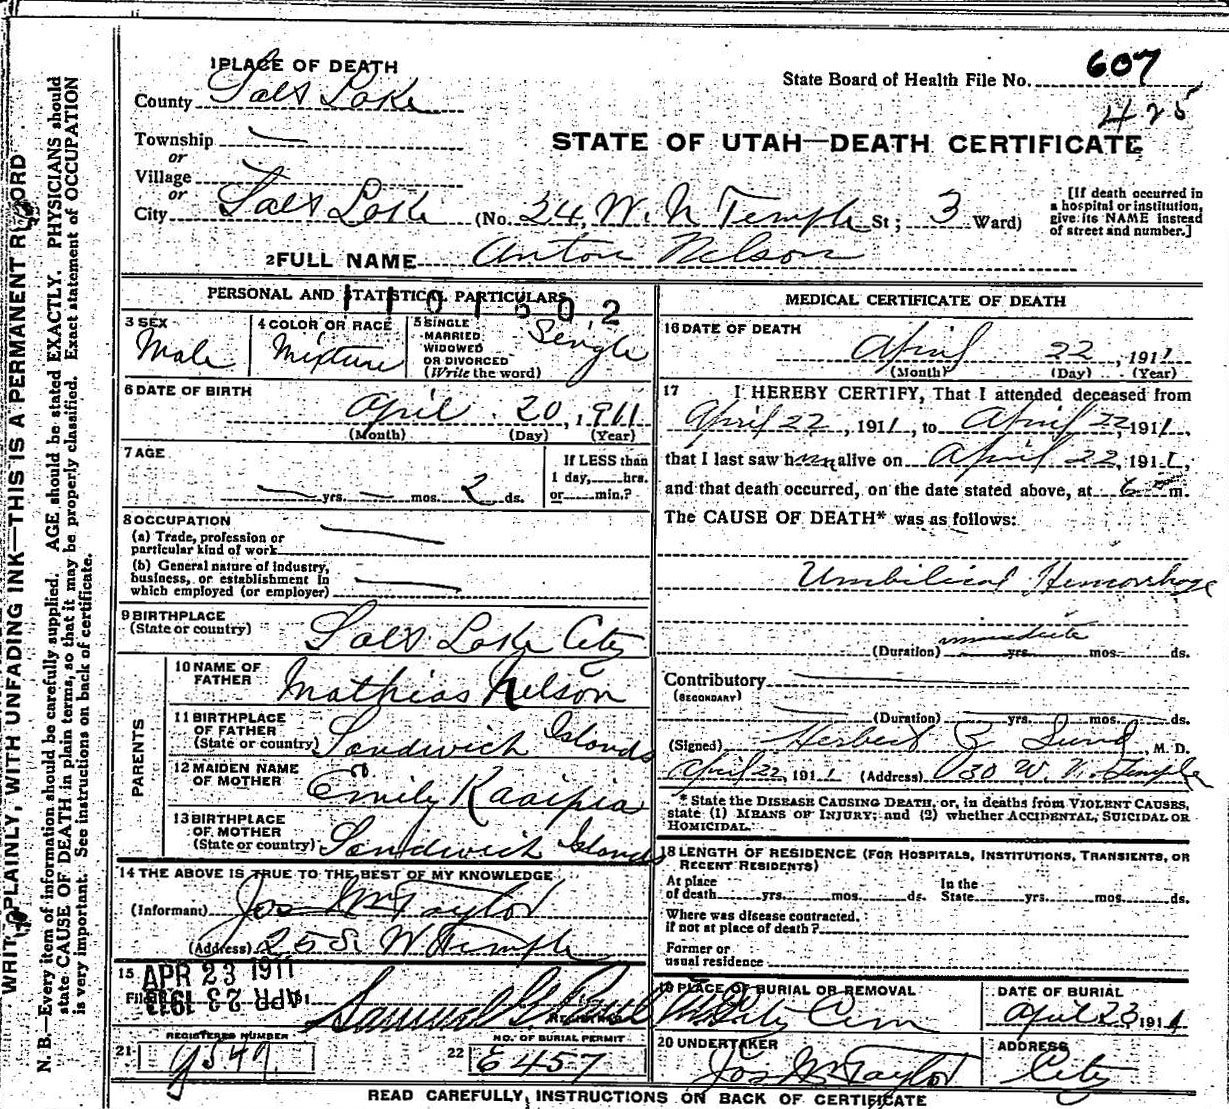 1 PLACE OF DEATH
County Salt Lake
Township —
or
Village
or
City Salt Lake (No. 34, W. N Temple St; 3 Ward)
State Board of Health File No. 607
425
STATE OF UTAH—DEATH CERTIFICATE
[If death occurred in
a hospital or institution,
give its NAME instead
of street and number.]
2 FULL NAME Anton Nelson
PERSONAL AND STATISTICAL PARTICULARS
1101602
3 SEX
Male
4 COLOR OR RACE
Mixture
5 SINGLE
MARRIED
WIDOWED
OR DIVORCED
(Write the word)
Single
6 DATE OF BIRTH
April 20, 1911
(Month) (Day) (Year)
7 AGE
— yrs. — mos. 2 ds.
If LESS than
1 day, hrs.
or min.?
8 OCCUPATION
(a) Trade, profession or
particular kind of work —
(b) General nature of industry,
business, or establishment in
which employed (or employer) —
9 BIRTHPLACE
(State or country) Salt Lake City
PARENTS
10 NAME OF
FATHER Mathias Nelson
11 BIRTHPLACE
OF FATHER
(State or country) Sandwich Islands
12 MAIDEN NAME
OF MOTHER Emily Kaaipia
13 BIRTHPLACE
OF MOTHER
(State or country) Sandwich Islands
14 THE ABOVE IS TRUE TO THE BEST OF MY KNOWLEDGE
(Informant) Jos Wm Taylor
(Address) 25 S. W Temple
15 APR 23 1911
APR 23 1911
REGISTERED NUMBER
21
NO. OF BURIAL PERMIT
22 E457
MEDICAL CERTIFICATE OF DEATH
16 DATE OF DEATH
April 22, 1911
(Month) (Day) (Year)
17 I HEREBY CERTIFY, That I attended deceased from
April 22, 1911, to April 22, 1911,
that I last saw him alive on April 22, 1911,
and that death occurred, on the date stated above, at 6 m.
The CAUSE OF DEATH* was as follows:
Umbilical Hemorrhage
immediate
(Duration) yrs. mos. ds.
Contributory —
(SECONDARY)
(Duration) yrs. mos. ds.
(Signed) Herbert Z Lund, M. D.
April 22, 1911 (Address) 30 W. N. Temple
* State the DISEASE CAUSING DEATH, or, in deaths from VIOLENT CAUSES,
state (1) MEANS OF INJURY; and (2) whether ACCIDENTAL, SUICIDAL OR
HOMICIDAL.
18 LENGTH OF RESIDENCE (FOR HOSPITALS, INSTITUTIONS, TRANSIENTS, OR
RECENT RESIDENTS)
At place
of death yrs. mos. ds.
In the
State yrs. mos. ds.
Where was disease contracted,
if not at place of death?
Former or
usual residence
19 PLACE OF BURIAL OR REMOVAL
City Cem
DATE OF BURIAL
April 23 1911
20 UNDERTAKER
Jos Wm Taylor
ADDRESS
City
READ CAREFULLY, INSTRUCTIONS ON BACK OF CERTIFICATE
WRITE PLAINLY, WITH UNFADING INK—THIS IS A PERMANENT RECORD
N. B.—Every item of information should be carefully supplied. AGE should be stated EXACTLY. PHYSICIANS should
state CAUSE OF DEATH in plain terms, so that it may be properly classified. Exact statement of OCCUPATION
is very important. See instructions on back of certificate.